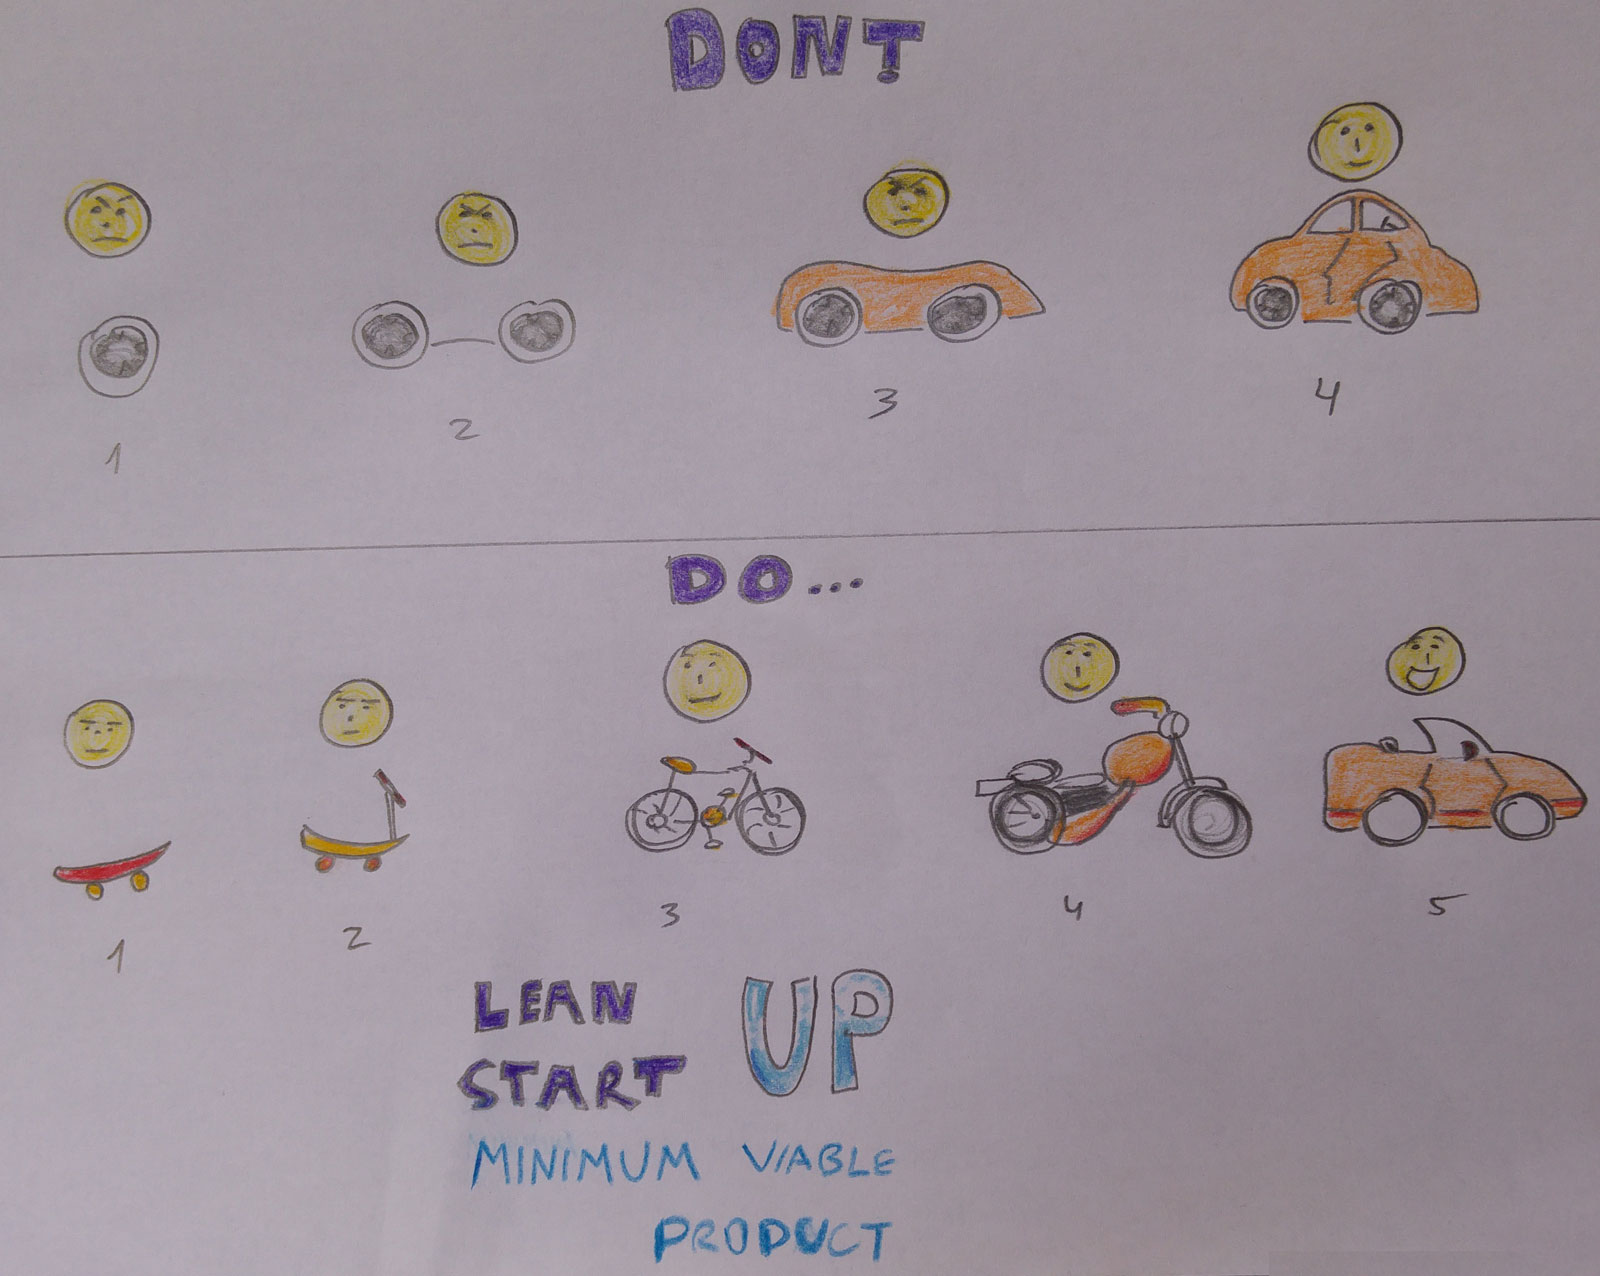 DONT
1 2 3 4
DO...
1 2 3 4 5
LEAN
START UP
MINIMUM VIABLE
PRODUCT